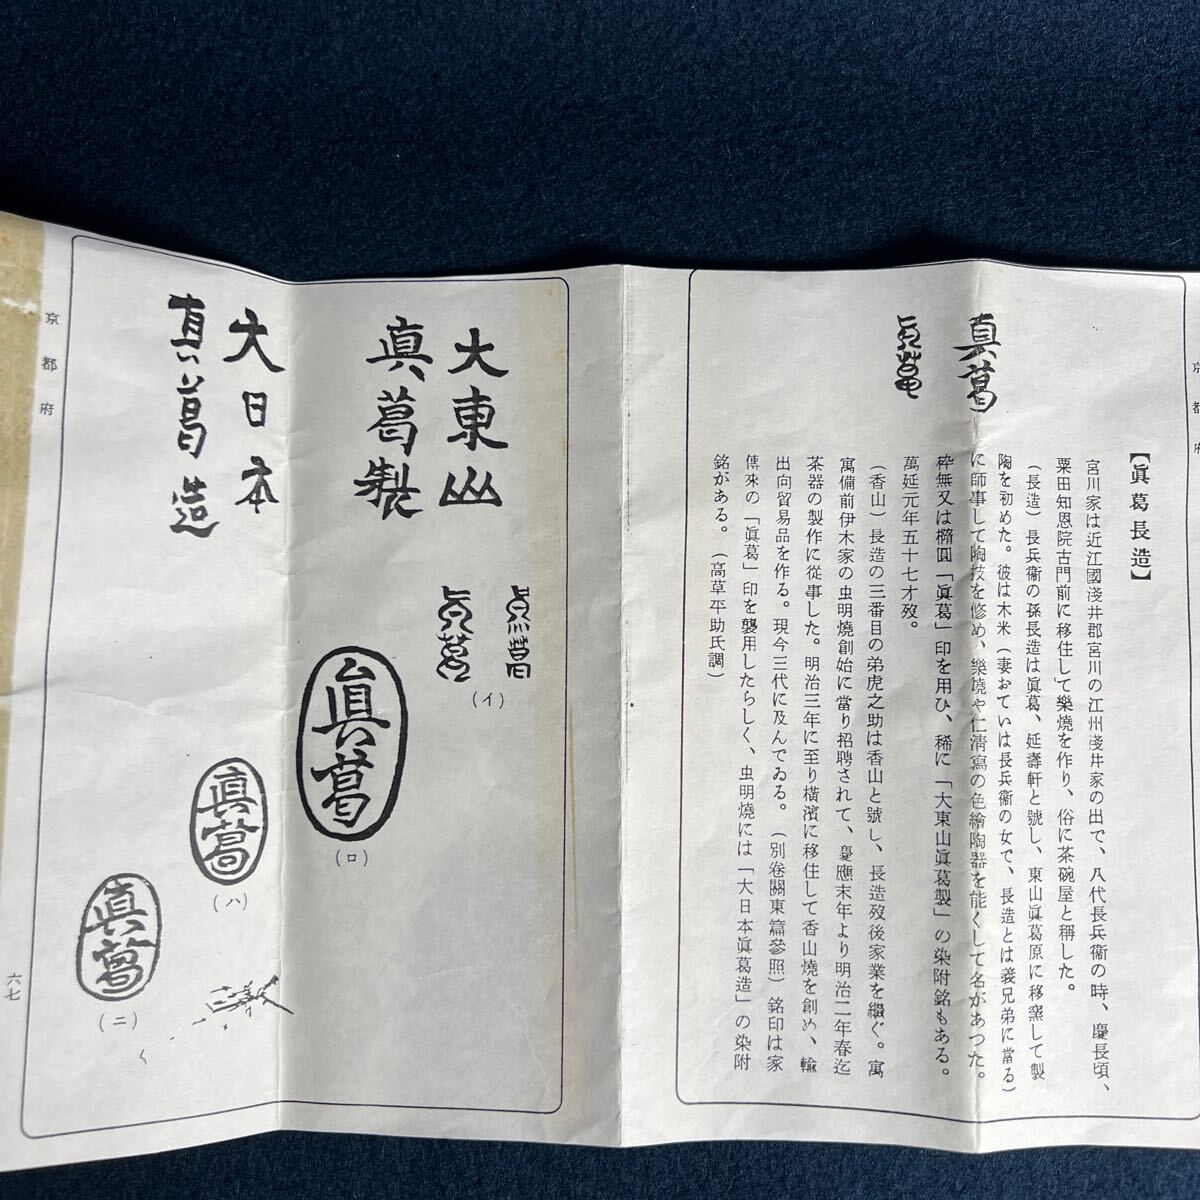 京都府
【眞葛長造】
宮川家は近江國淺井郡宮川の江州淺井家の出で、八代長兵衞の時、慶長頃、
粟田知恩院古門前に移住して樂燒を作り、俗に茶碗屋と稱した。
（長造）長兵衞の孫長造は眞葛、延壽軒と號し、東山眞葛原に移窯して製
陶を初めた。彼は木米（妻おていは長兵衞の女で、長造とは義兄弟に當る）
に師事して陶技を修め、樂燒や仁淸寫の色繪陶器を能くして名があつた。
枠無又は橢圓「眞葛」印を用ひ、稀に「大東山眞葛製」の染附銘もある。
萬延元年五十七才歿。
（香山）長造の三番目の弟虎之助は香山と號し、長造歿後家業を繼ぐ。寓
寓備前伊木家の虫明燒創始に當り招聘されて、慶應末年より明治二年春迄
茶器の製作に從事した。明治三年に至り橫濱に移住して香山燒を創め、輸
出向貿易品を作る。現今三代に及んでゐる。（別卷關東篇參照）銘印は家
傳來の「眞葛」印を襲用したらしく、虫明燒には「大日本眞葛造」の染附
銘がある。（高草平助氏調）
真葛
真葛
大東山
眞葛製
真葛
真葛
（イ）
眞葛
（ロ）
大日本
真葛造
眞葛
（ハ）
眞葛
（ニ）
京都府
六七